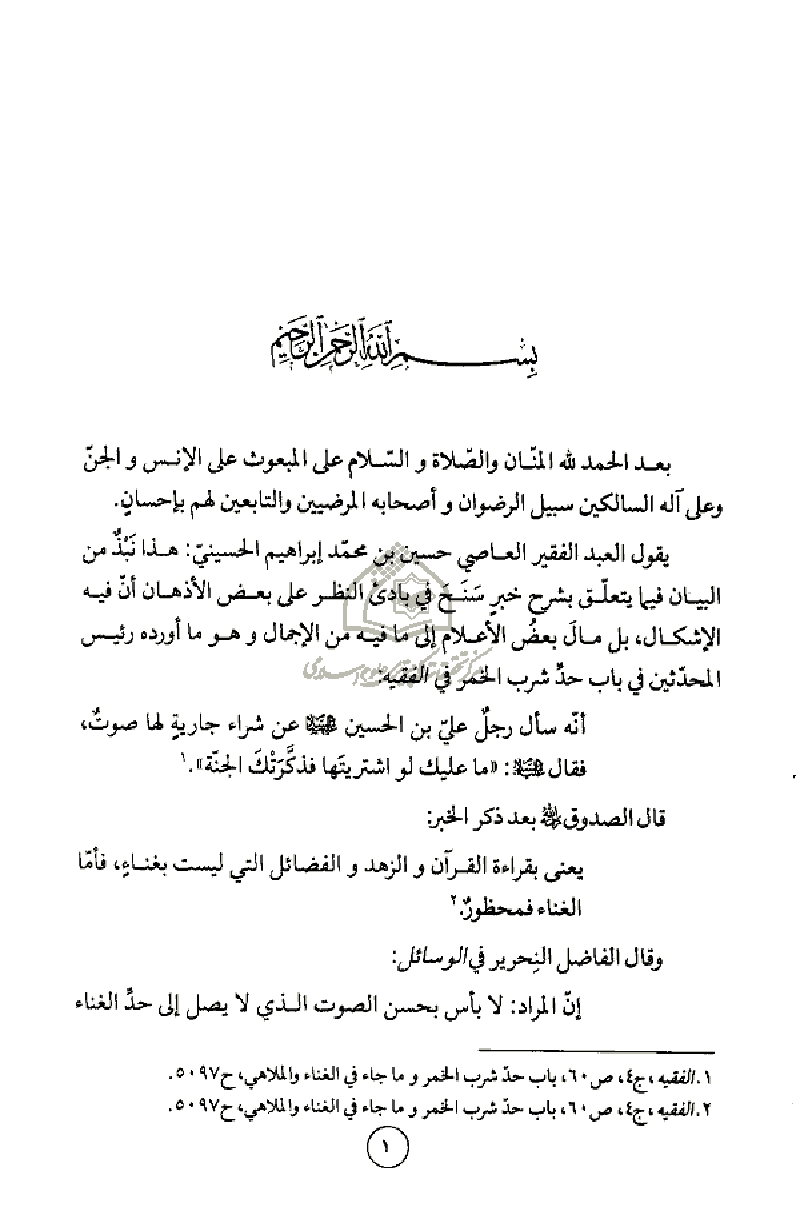 بِسْمِ اللَّهِ الرَّحْمَنِ الرَّحِيمِ
بعد الحمد لله المنّان والصّلاة و السّلام على المبعوث على الإنس و الجنّ
وعلى آله السالكين سبيل الرضوان و أصحابه المرضيين والتابعين لهم بإحسانٍ.
يقول العبد الفقير العاصي حسين بن محمّد إبراهيم الحسينيّ: هذا نَبْذٌ من
البيان فيما يتعلّق بشرح خبرٍ سَنَحَ في بادئ النظر على بعض الأذهان أنّ فيه
الإشكال، بل مالَ بعضُ الأعلام إلى ما فيه من الإجمال و هو ما أورده رئيس
المحدّثين في باب حدِّ شرب الخمر في الفقيه:
أنّه سأل رجلٌ عليّ بن الحسين عليه السلام عن شراء جاريةٍ لها صوتٌ،
فقال عليه السلام: «ما عليك لو اشتريتَها فذكَّرَتْكَ الجنّة».١
قال الصدوق رحمه الله بعد ذكر الخبر:
يعنى بقراءة القرآن و الزهد و الفضائل التي ليست بغناءٍ، فأمّا
الغناء فمحظورٌ.٢
وقال الفاضل النِحرير في الوسائل:
إنّ المراد: لا بأس بحسن الصوت الذي لا يصل إلى حدِّ الغناء
١. الفقيه، ج٤، ص٦٠، باب حدّ شرب الخمر و ما جاء في الغناء والملاهي، ح٥٠٩٧.
٢. الفقيه، ج٤، ص٦٠، باب حدّ شرب الخمر و ما جاء في الغناء والملاهي، ح٥٠٩٧.
١